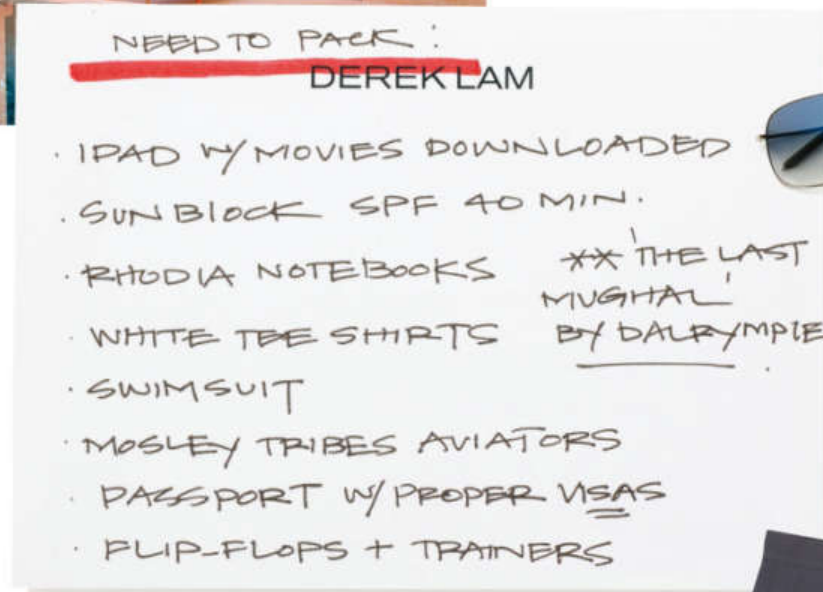 NEED TO PACK:
DEREK LAM
· IPAD W/ MOVIES DOWNLOADED
· SUNBLOCK SPF 40 MIN.
· RHODIA NOTEBOOKS
· WHITE TEE SHIRTS
· SWIMSUIT
· MOSLEY TRIBES AVIATORS
· PASSPORT W/ PROPER VISAS
· FLIP-FLOPS + TRAINERS
** 'THE LAST
MUGHAL'
BY DALRYMPLE.